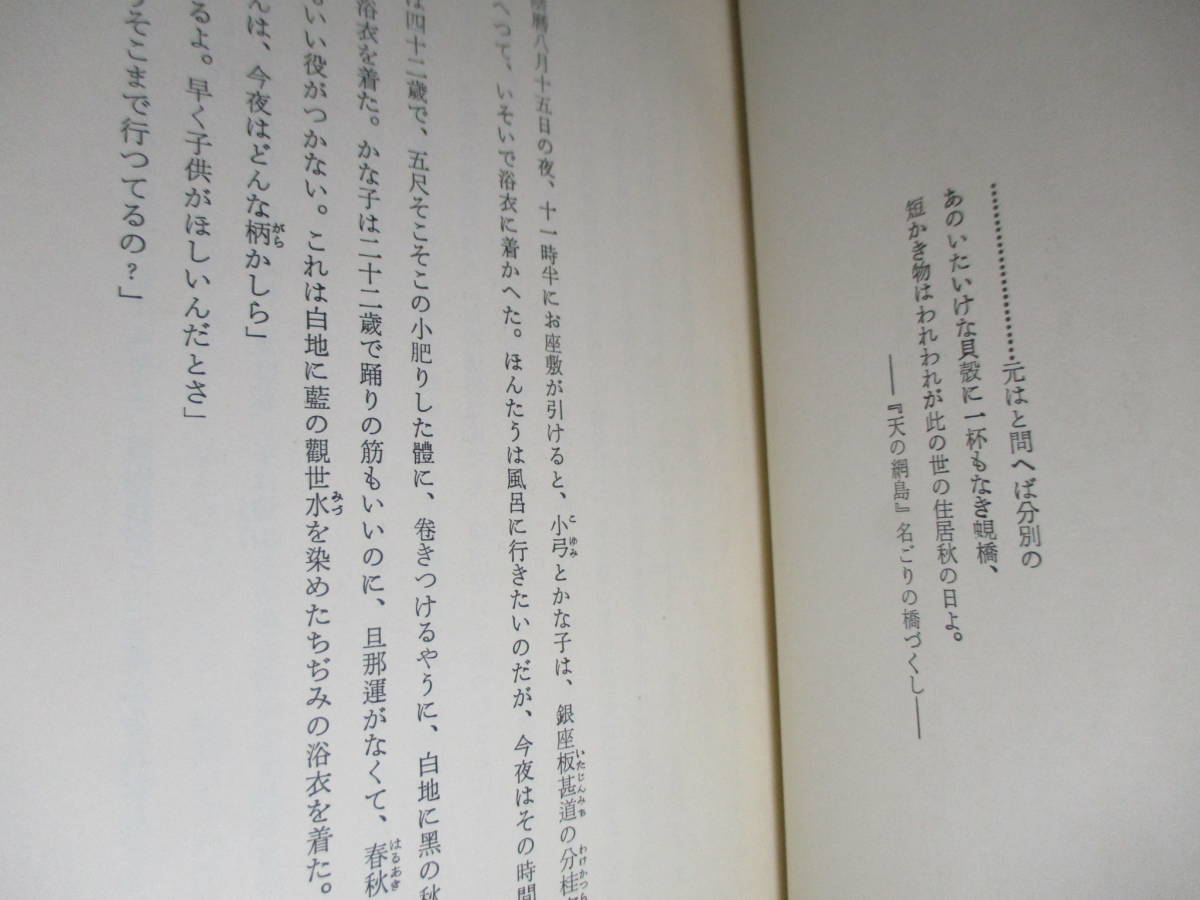 ……………………元はと問へば分別の
あのいたいけな貝殻に一杯もなき蜆橋、
短かき物はわれわれが此の世の住居秋の日よ。
――『天の網島』名ごりの橋づくし――
暦八月十五日の夜、十一時半にお座敷が引けると、小弓とかな子は、銀座板甚道の分桂
へつて、いそいで浴衣に着かへた。ほんたうは風呂に行きたいのだが、今夜はその時間
は四十二歳で、五尺そこそこの小肥りした體に、卷きつけるやうに、白地に黑の秋
浴衣を着た。かな子は二十二歳で踊りの筋もいいのに、旦那運がなくて、春秋
いい役がつかない。これは白地に藍の觀世水を染めたちぢみの浴衣を着た。
んは、今夜はどんな柄かしら」
るよ。早く子供がほしいんだとさ」
うそこまで行つてるの?」